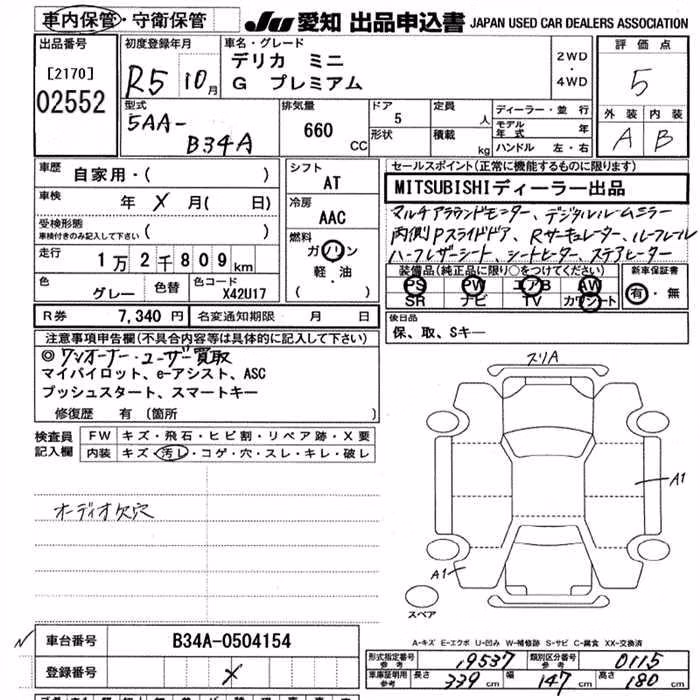 車内保管・守衛保管
JU 愛知 出品申込書 JAPAN USED CAR DEALERS ASSOCIATION
出品番号
[2170]
02552
初度登録年月
R5 10月
車名・グレード
デリカ ミニ
G プレミアム
2WD
・
4WD
評価点
5
外装 内装
A B
型式
5AA-
B34A
排気量
660 CC
ドア
5
形状
定員
人
積載
kg
ディーラー・並行
モデル年式 年
ハンドル 左・右
車歴
自家用・( )
車検
年 X 月( 日)
受検形態
車検付きのみ記入して下さい ( )
走行
1万2千809km
色
グレー
色替
色コード
X42U17
シフト
AT
冷房
AAC
燃料
ガソリン
軽・油
( )
セールスポイント(正常に機能するものに限ります)
MITSUBISHIディーラー出品
マルチアラウンドモニター、デジタルルームミラー
両側Pスライドドア、Rサーキュレーター、ルーフレール
ハーフレザーシート、シートヒーター、ステアヒーター
装備品(純正品に限り○をつけてください)
PS PW エアB AW
SR ナビ TV カワシート
新車保証書
有・無
R券 7,340円
名変通知期限 月 日
後日品
保、取、Sキー
注意事項申告欄(不具合内容等は具体的に記入して下さい)
◎ワンオーナー・ユーザー買取
マイパイロット、e-アシスト、ASC
プッシュスタート、スマートキー
修復歴 有 (箇所 )
検査員
記入欄
FW キズ・飛石・ヒビ割・リペア跡・X要
内装 キズ・汚レ・コゲ・穴・スレ・キレ・破レ
オーディオ欠穴
スリA
A1
A1
スペア
A-キズ E-エクボ U-凹み W-補修跡 S-サビ C-腐食 XX-交換済
N
車台番号 B34A-0504154
登録番号 X
形式指定番号
参考
19537
類別区分番号
参考
0115
車庫証明用
参考
長さ 339cm 幅 147cm 高さ 180cm